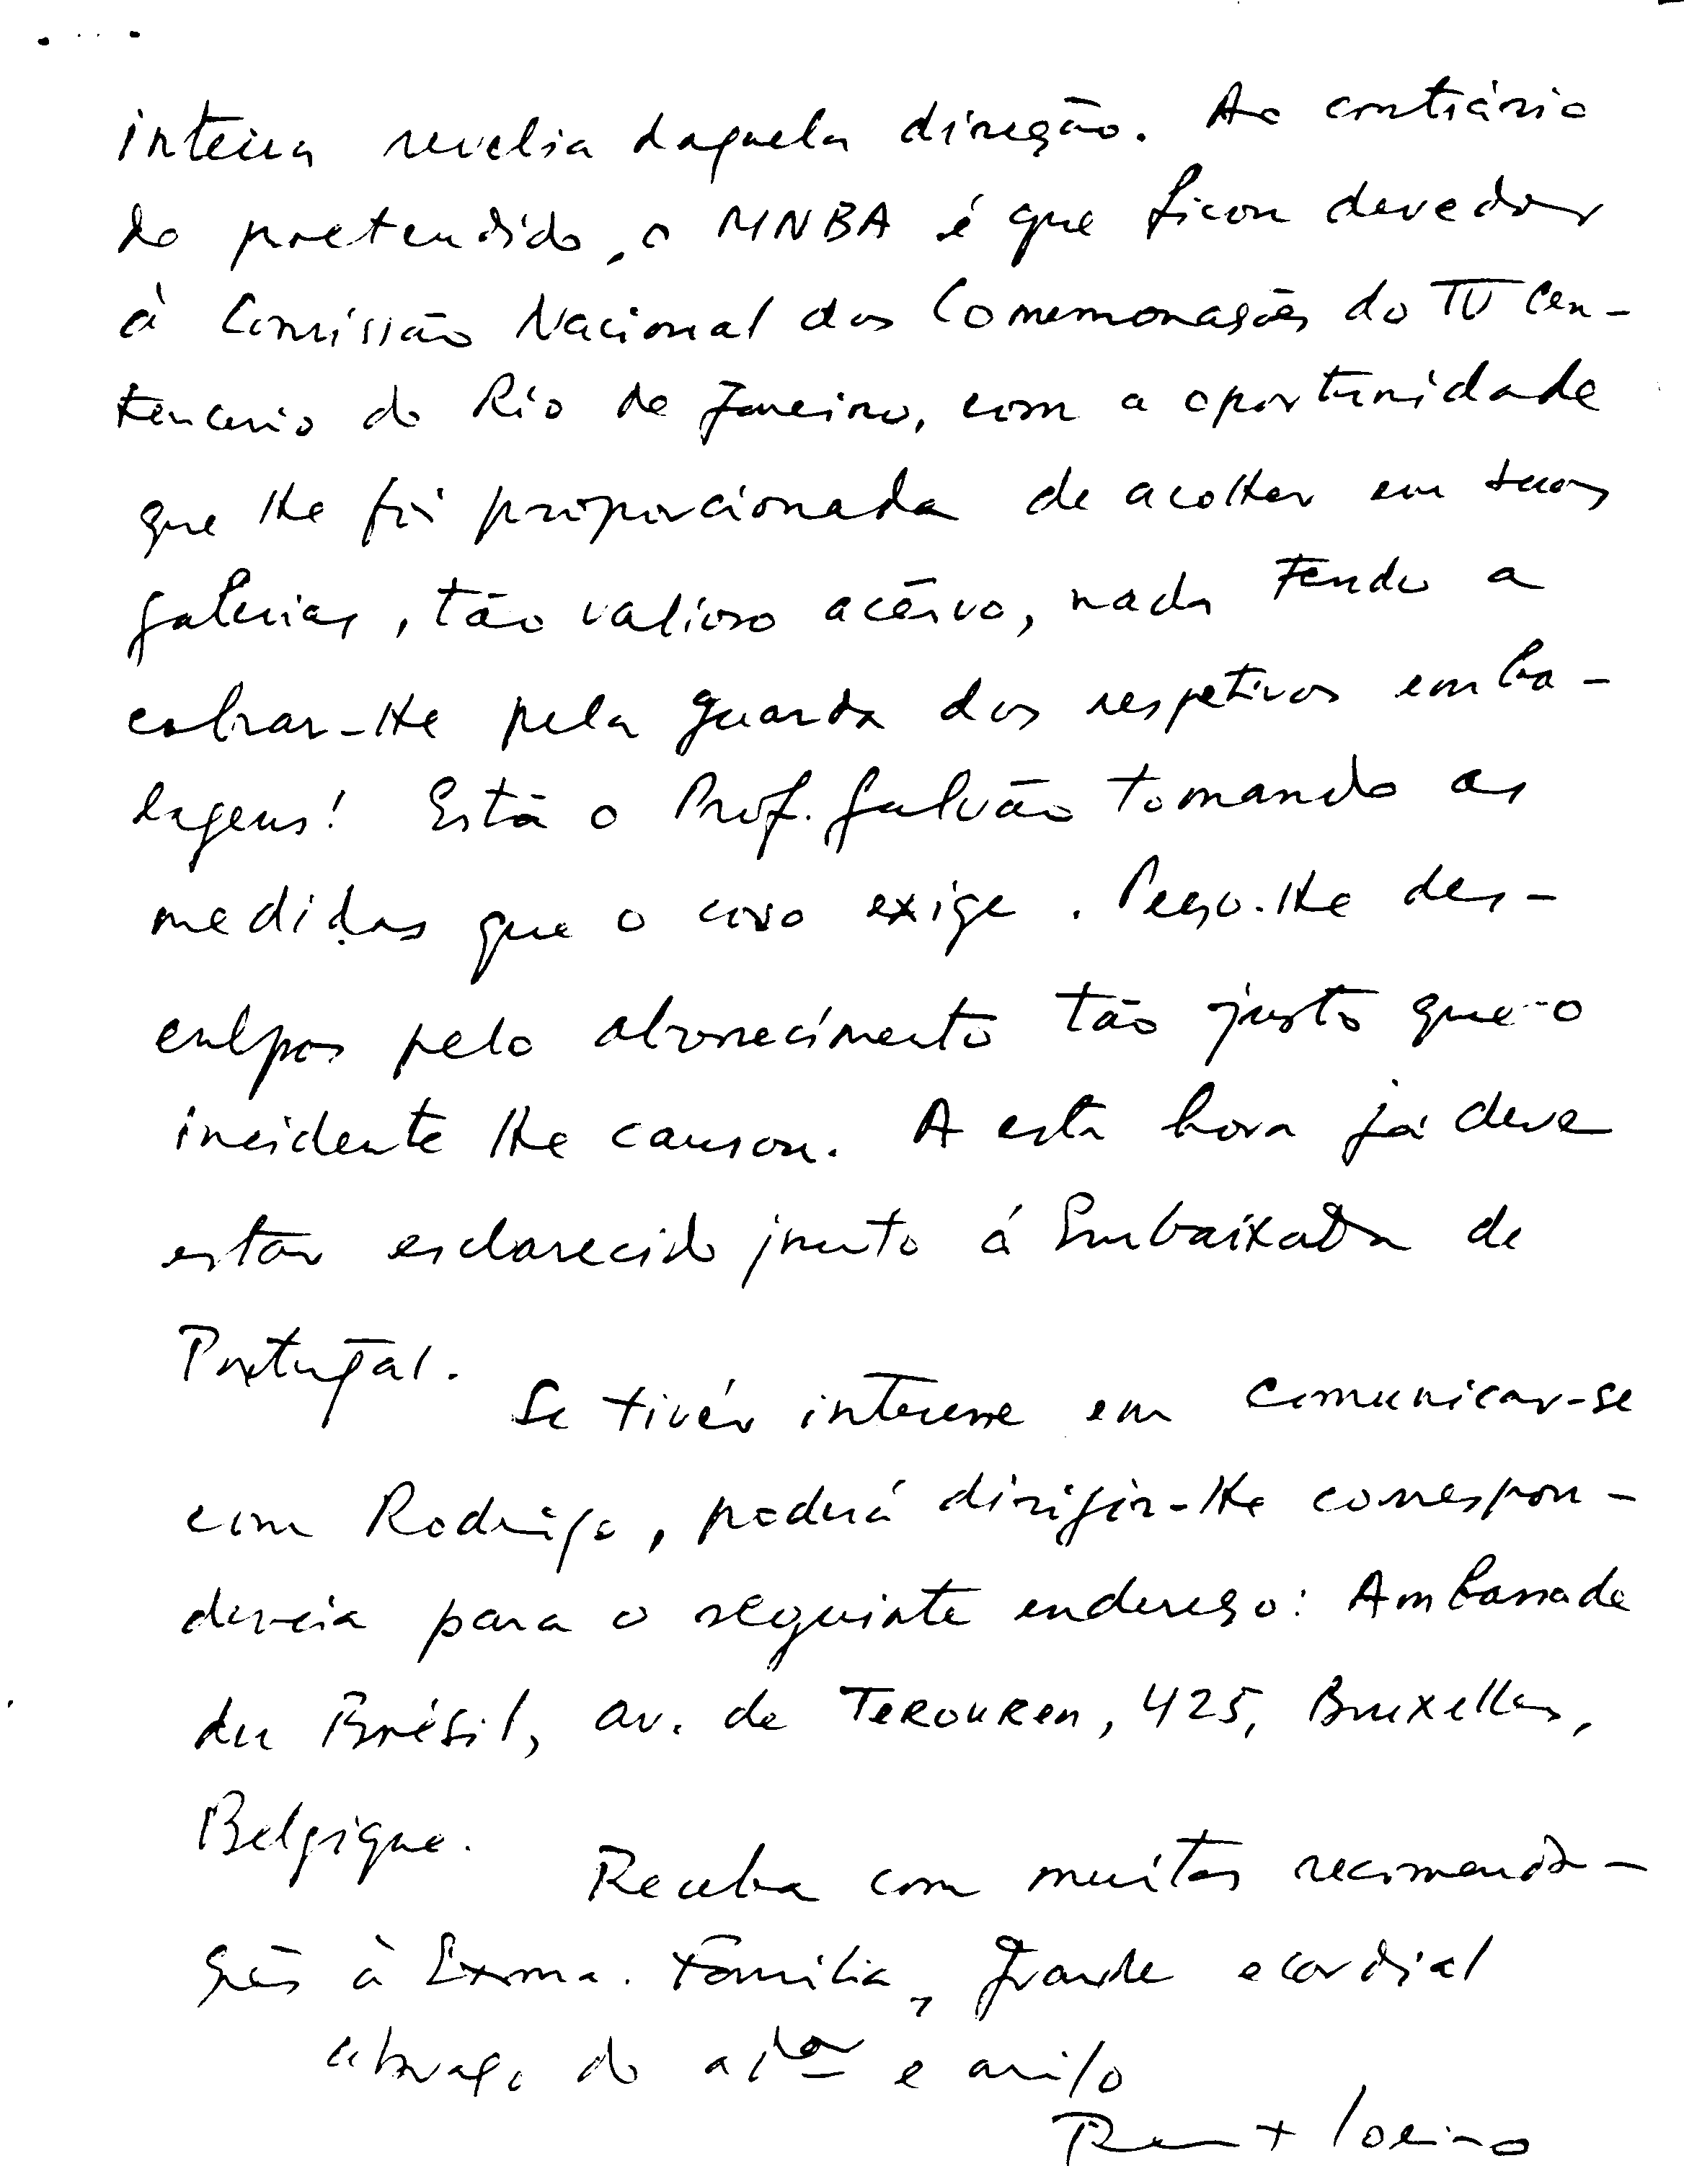 inteira revelia daquela direção. Ao contrário
do pretendido, o MNBA é que ficou devedor
à Comissão Nacional das Comemorações do IV Cen-
tenario do Rio de Janeiro, com a oportunidade
que lhe foi proporcionada de acolher em suas
galerias, tão valioso acêrvo, nada tendo a
cobrar-lhe pela guarda das respetivas emba-
lagens! Está o Prof. Galvão tomando as
medidas que o caso exige. Peço-lhe des-
culpas pelo aborrecimento tão justo que o
incidente lhe causou. A esta hora já deve
estar esclarecido junto á Embaixada de
Portugal.
Se tivér interesse em comunicar-se
com Rodrigo, poderá dirigir-lhe correspon-
dencia para o seguinte endereço: Ambassade
du Brésil, av. de TEROUREN, 425, Bruxelles,
Belgique.
Receba com muitas recomenda-
ções à Exma. Família, grande e cordial
abraço do a/dor e amigo